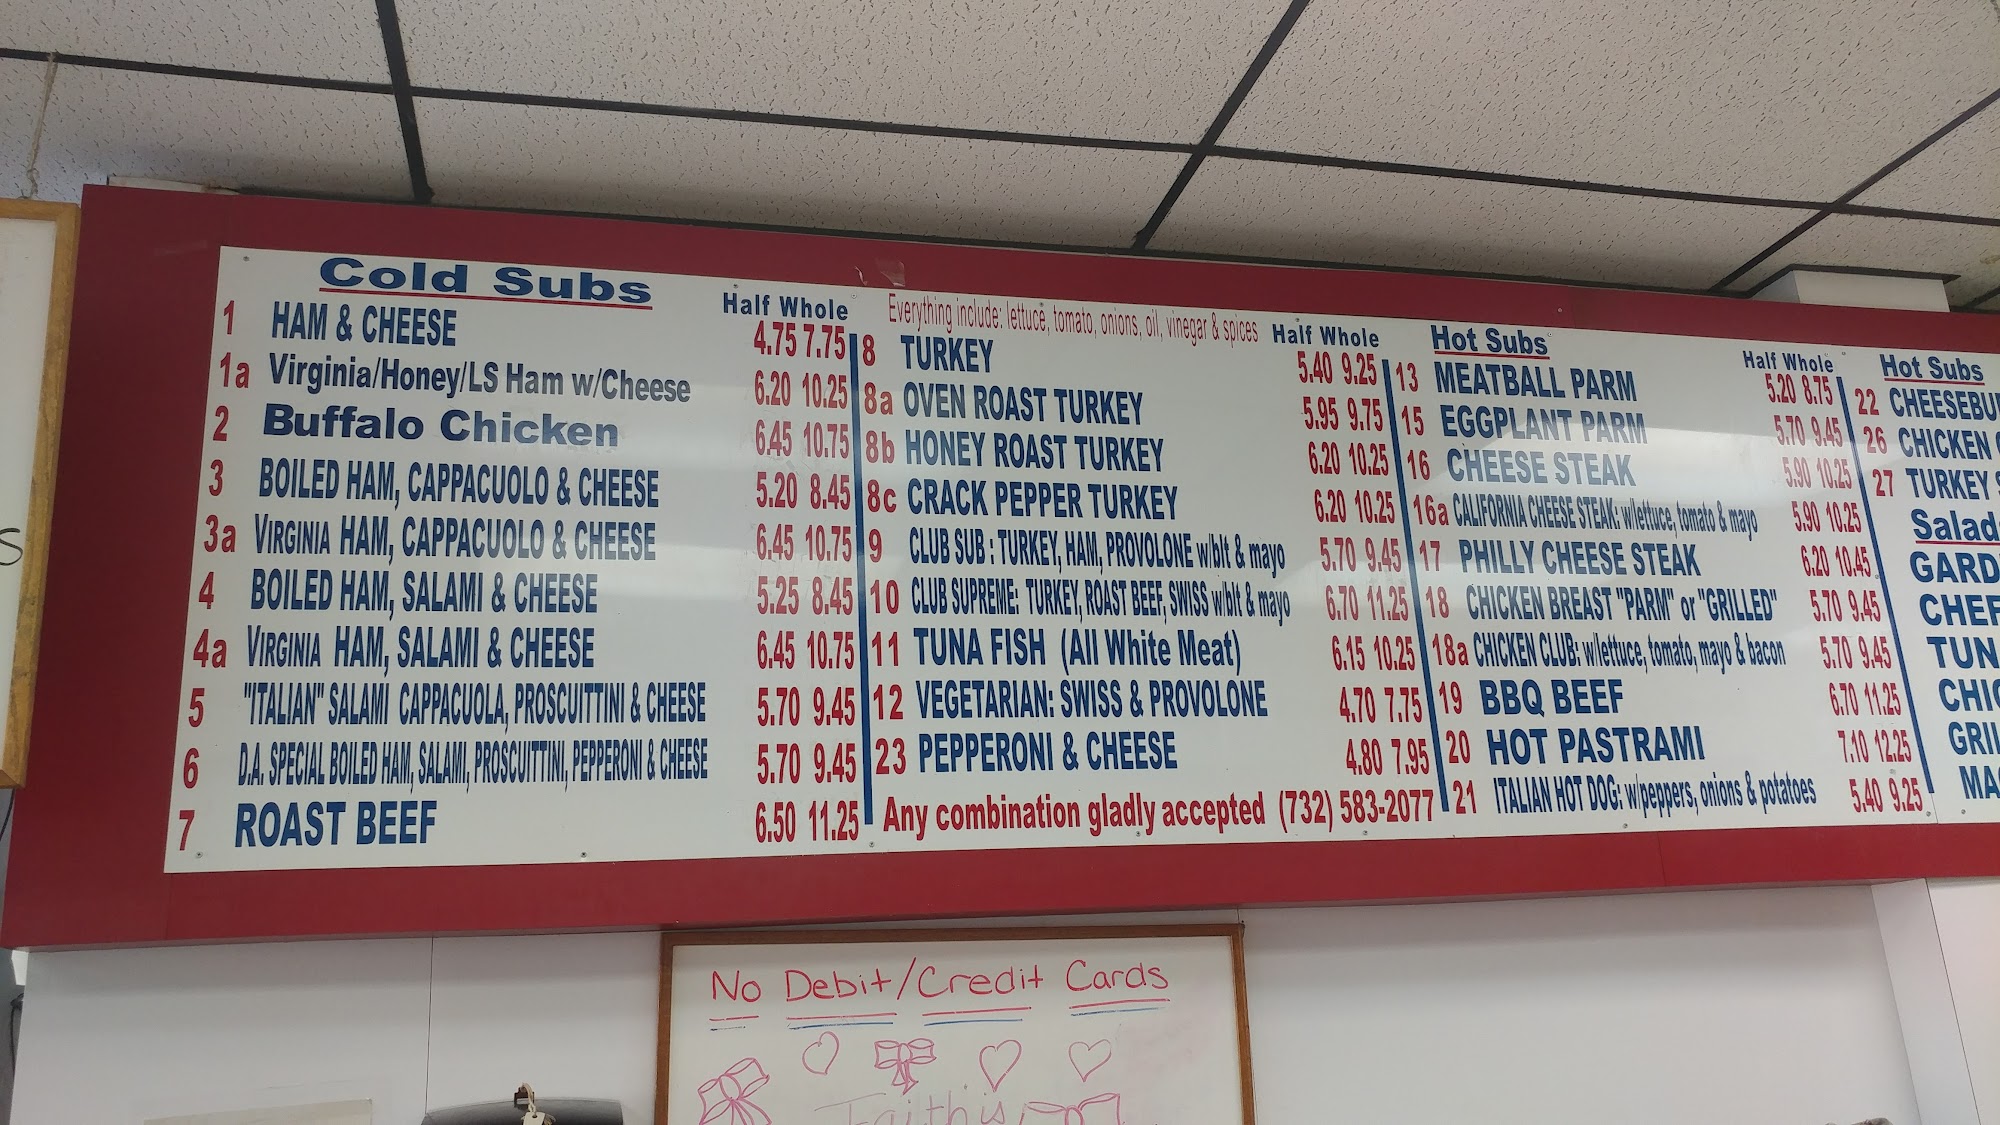 Cold Subs
Half Whole
1 HAM & CHEESE 4.75 7.75
1a Virginia/Honey/LS Ham w/Cheese 6.20 10.25
2 Buffalo Chicken 6.45 10.75
3 BOILED HAM, CAPPACUOLO & CHEESE 5.20 8.45
3a VIRGINIA HAM, CAPPACUOLO & CHEESE 6.45 10.75
4 BOILED HAM, SALAMI & CHEESE 5.25 8.45
4a VIRGINIA HAM, SALAMI & CHEESE 6.45 10.75
5 "ITALIAN" SALAMI CAPPACUOLA, PROSCUITTINI & CHEESE 5.70 9.45
6 D.A. SPECIAL BOILED HAM, SALAMI, PROSCUITTINI, PEPPERONI & CHEESE 5.70 9.45
7 ROAST BEEF 6.50 11.25
Everything include: lettuce, tomato, onions, oil, vinegar & spices
Half Whole
8 TURKEY 5.40 9.25
8a OVEN ROAST TURKEY 5.95 9.75
8b HONEY ROAST TURKEY 6.20 10.25
8c CRACK PEPPER TURKEY 6.20 10.25
9 CLUB SUB : TURKEY, HAM, PROVOLONE w/blt & mayo 5.70 9.45
10 CLUB SUPREME: TURKEY, ROAST BEEF, SWISS w/blt & mayo 6.70 11.25
11 TUNA FISH (All White Meat) 6.15 10.25
12 VEGETARIAN: SWISS & PROVOLONE 4.70 7.75
23 PEPPERONI & CHEESE 4.80 7.95
Any combination gladly accepted (732) 583-2077
Hot Subs
Half Whole
13 MEATBALL PARM 5.20 8.75
15 EGGPLANT PARM 5.70 9.45
16 CHEESE STEAK 5.90 10.25
16a CALIFORNIA CHEESE STEAK: w/lettuce, tomato & mayo 5.90 10.25
17 PHILLY CHEESE STEAK 6.20 10.45
18 CHICKEN BREAST "PARM" or "GRILLED" 5.70 9.45
18a CHICKEN CLUB: w/lettuce, tomato, mayo & bacon 5.70 9.45
19 BBQ BEEF 6.70 11.25
20 HOT PASTRAMI 7.10 12.25
21 ITALIAN HOT DOG: w/peppers, onions & potatoes 5.40 9.25
Hot Subs
22 CHEESEBU
26 CHICKEN
27 TURKEY
Salads
GARD
CHEF
TUN
CHIC
GRIL
MA
No Debit/Credit Cards
Faith is
S